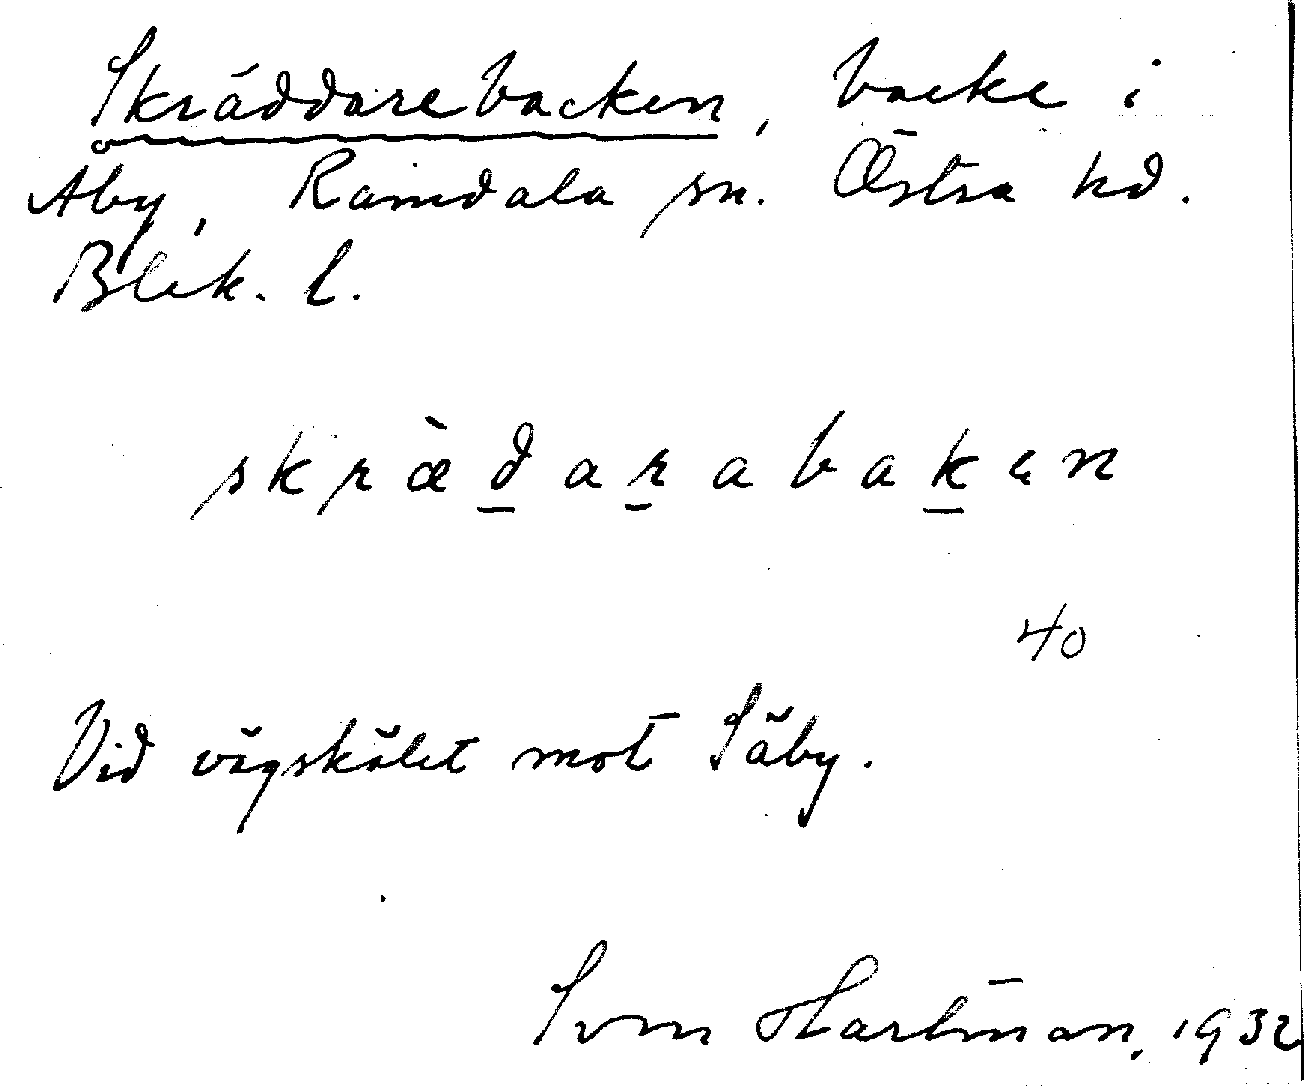 Skräddarebacken, backe i
Åby, Ramdala sn. Östra hd.
Blek. l.
skræ̀d̲ar̲abak̲ɛn
40
Vid vägskälet mot Säby.
Sven Hartman, 1932